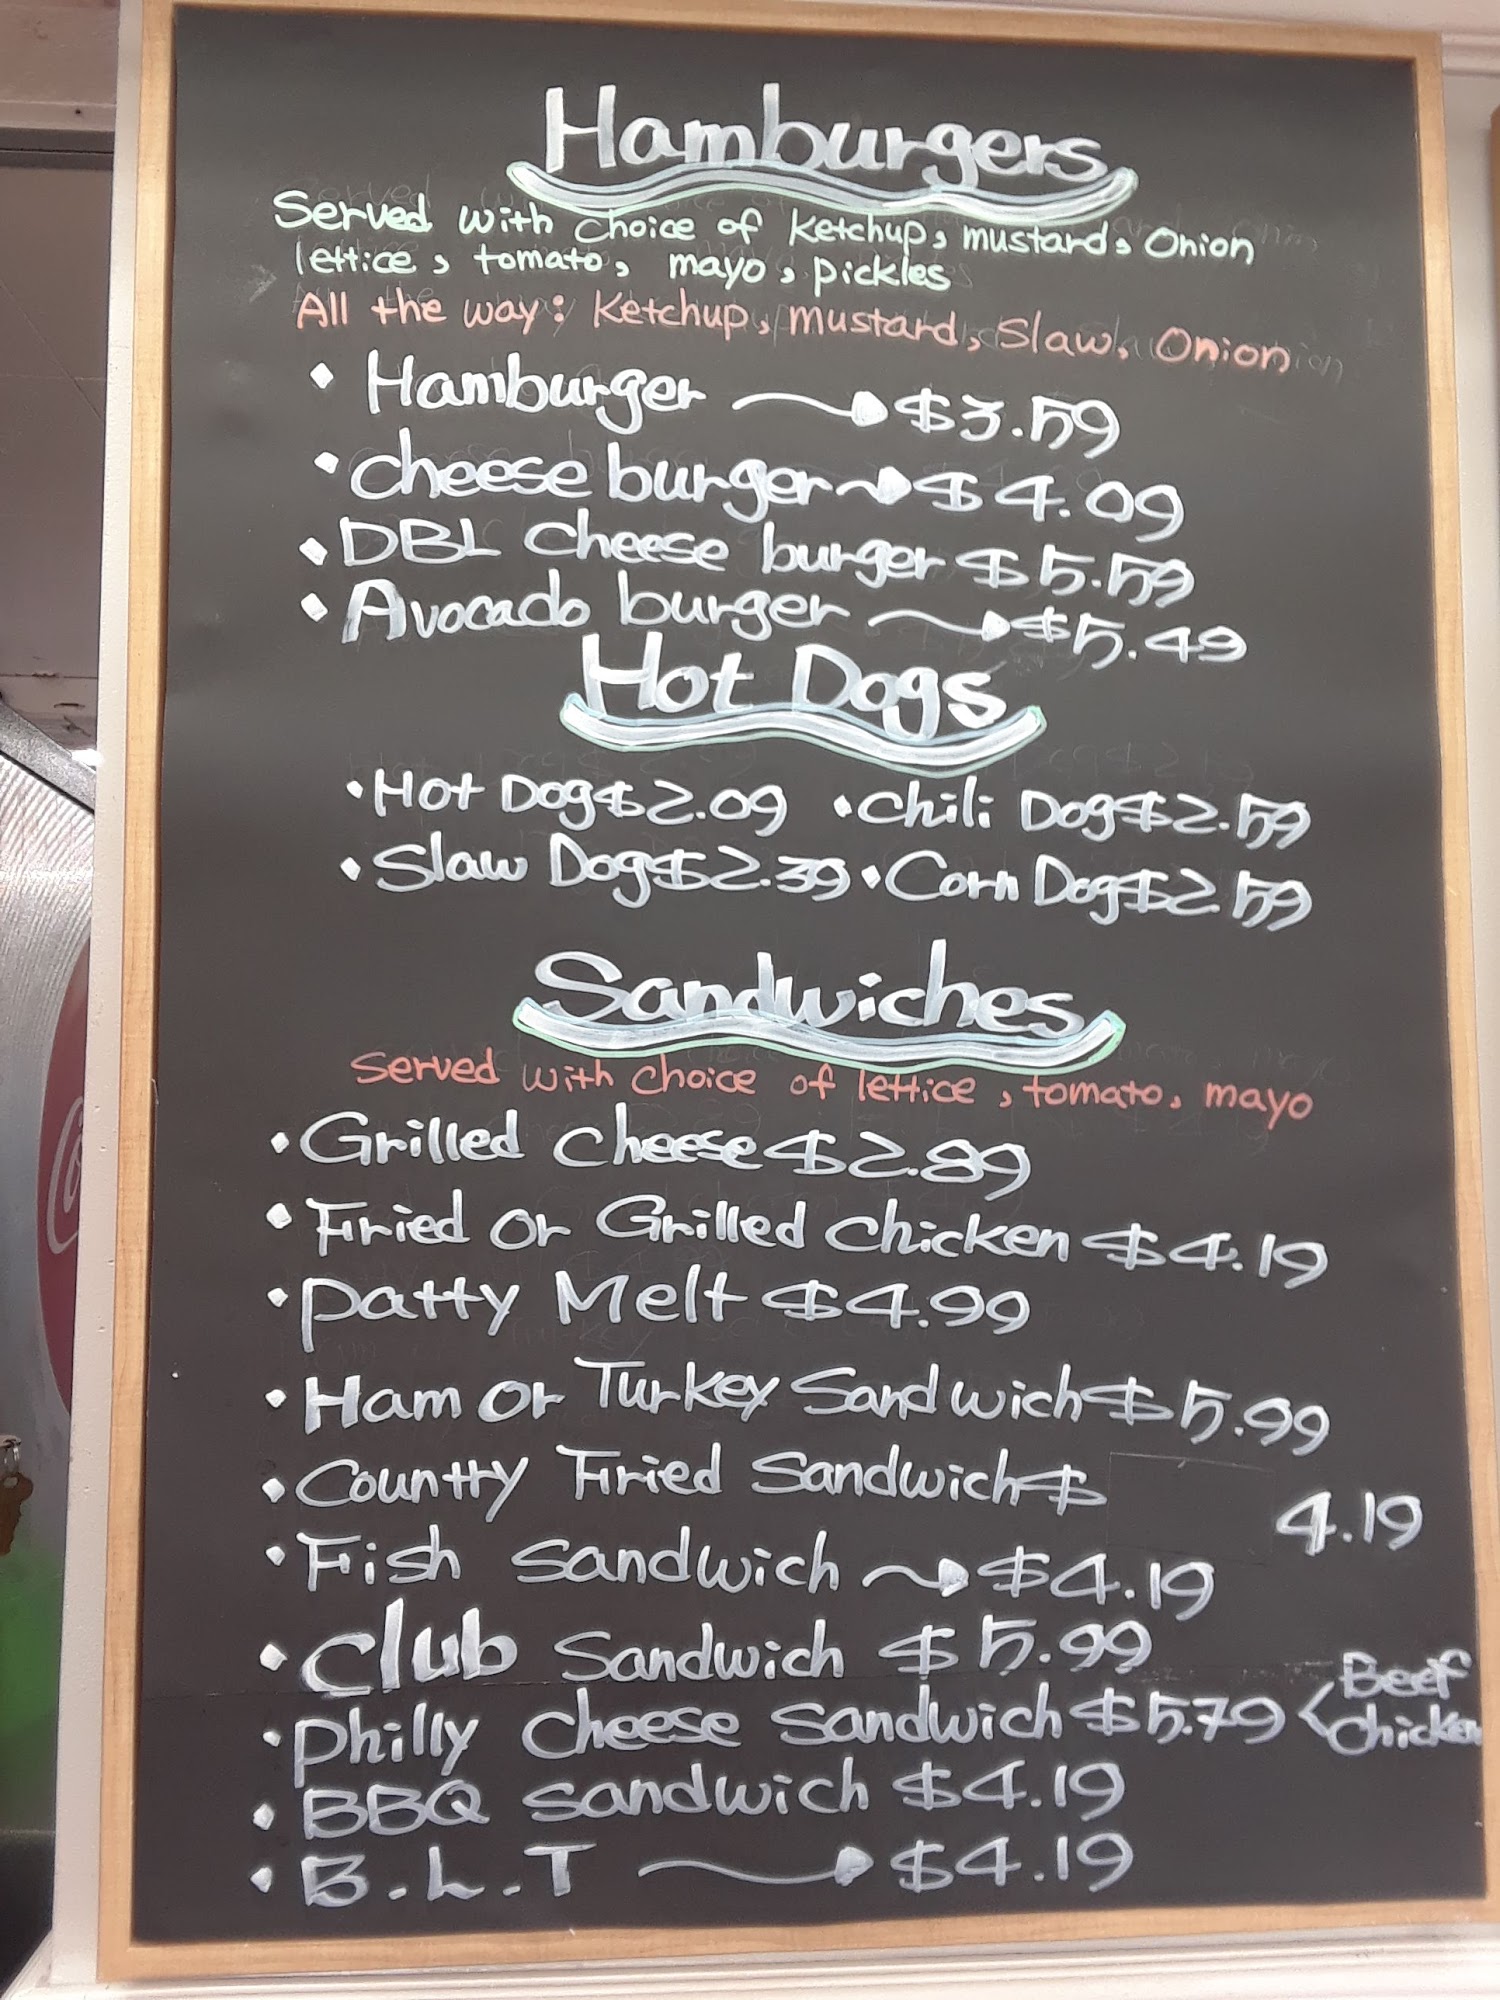 Hamburgers
Served with choice of Ketchup, mustard, Onion
lettice, tomato, mayo, pickles
All the way: Ketchup, mustard, Slaw, Onion
• Hamburger → $3.59
• cheese burger → $4.09
• DBL cheese burger $5.59
• Avocado burger → $5.49
Hot Dogs
• Hot Dog $2.09 • Chili Dog $2.59
• Slaw Dog $2.39 • Corn Dog $2.59
Sandwiches
Served with choice of lettice, tomato, mayo
• Grilled cheese $2.89
• Fried or Grilled chicken $4.19
• Patty Melt $4.99
• Ham or Turkey Sandwich $5.99
• Countty Fried Sandwich $ 4.19
• Fish Sandwich → $4.19
• Club Sandwich $5.99
• Philly Cheese Sandwich $5.79 < Beef
chicken
• BBQ Sandwich $4.19
• B.L.T → $4.19